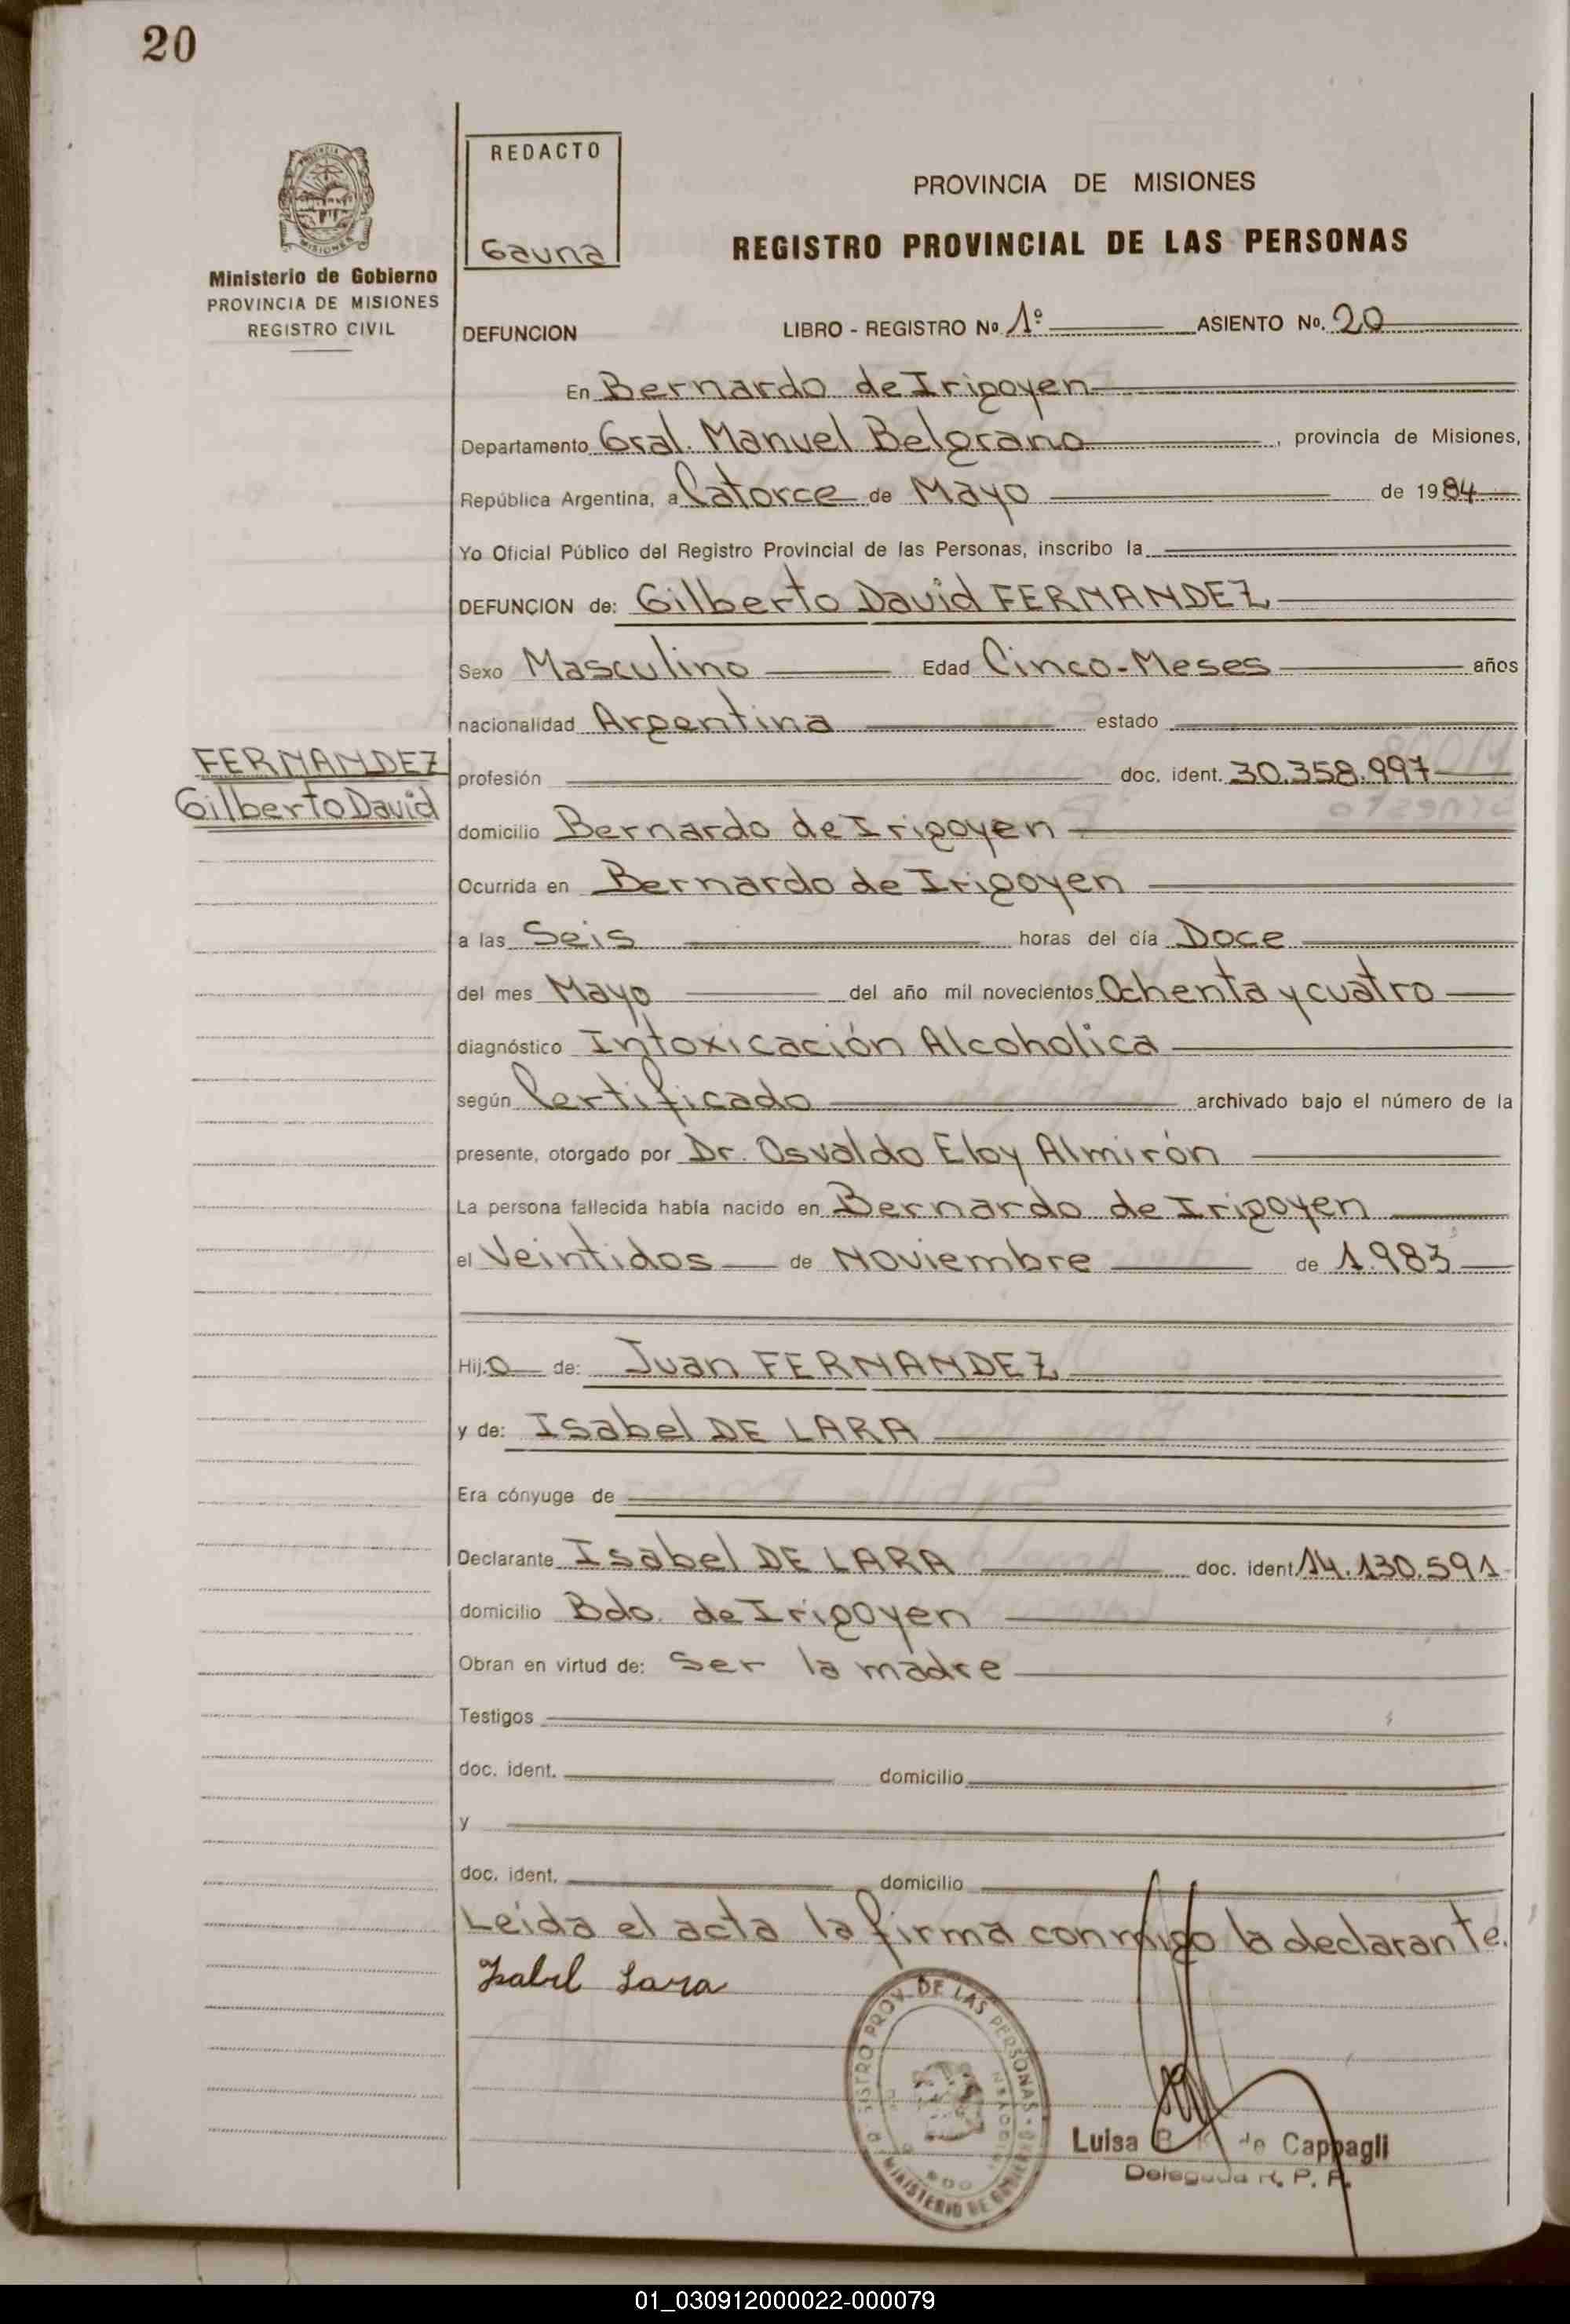 20
REDACTO
Gauna
Ministerio de Gobierno
PROVINCIA DE MISIONES
REGISTRO CIVIL
PROVINCIA DE MISIONES
REGISTRO PROVINCIAL DE LAS PERSONAS
DEFUNCION LIBRO - REGISTRO Nº 1º ASIENTO Nº. 20
En Bernardo de Irigoyen
Departamento Gral. Manuel Belgrano, provincia de Misiones,
República Argentina, a Catorce de Mayo de 1984
Yo Oficial Público del Registro Provincial de las Personas, inscribo la
DEFUNCION de: Gilberto David FERNANDEZ
Sexo Masculino Edad Cinco-Meses años
nacionalidad Argentina estado
FERNANDEZ
Gilberto David
profesión doc. ident. 30.358.997
domicilio Bernardo de Irigoyen
Ocurrida en Bernardo de Irigoyen
a las Seis horas del día Doce
del mes Mayo del año mil novecientos Ochenta y cuatro
diagnóstico Intoxicación Alcoholica
según Certificado archivado bajo el número de la
presente, otorgado por Dr. Osvaldo Eloy Almirón
La persona fallecida había nacido en Bernardo de Irigoyen
el Veintidos de Noviembre de 1.983
Hijo de: Juan FERNANDEZ
y de: Isabel DE LARA
Era cónyuge de
Declarante Isabel DE LARA doc. ident 14.130.591
domicilio Bdo. de Irigoyen
Obran en virtud de: Ser la madre
Testigos
doc. ident. domicilio
y
doc. ident. domicilio
Leida el acta la firma conmigo la declarante.
Isabel Lara
PROV. DE LAS PERSONAS
MINISTERIO DE GOBIERNO
Luisa B. K. de Cappagli
Delegada R. P. P.
01_030912000022-000079